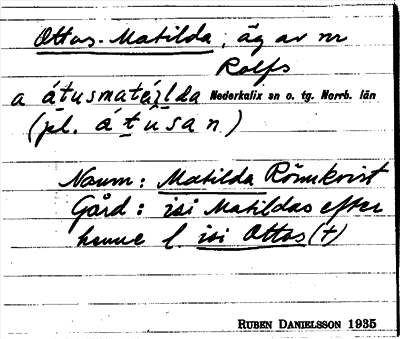 Ottos-Matilda, äg av nr
Rolfs
a átusmatą́lda Nederkalix sn o. tg. Norrb. län
(pl. átûsan)
Namn: Matilda Rönnkvist
Gård: isi Matildas efter
henne l. isi Ottos (†)
RUBEN DANIELSSON 1935